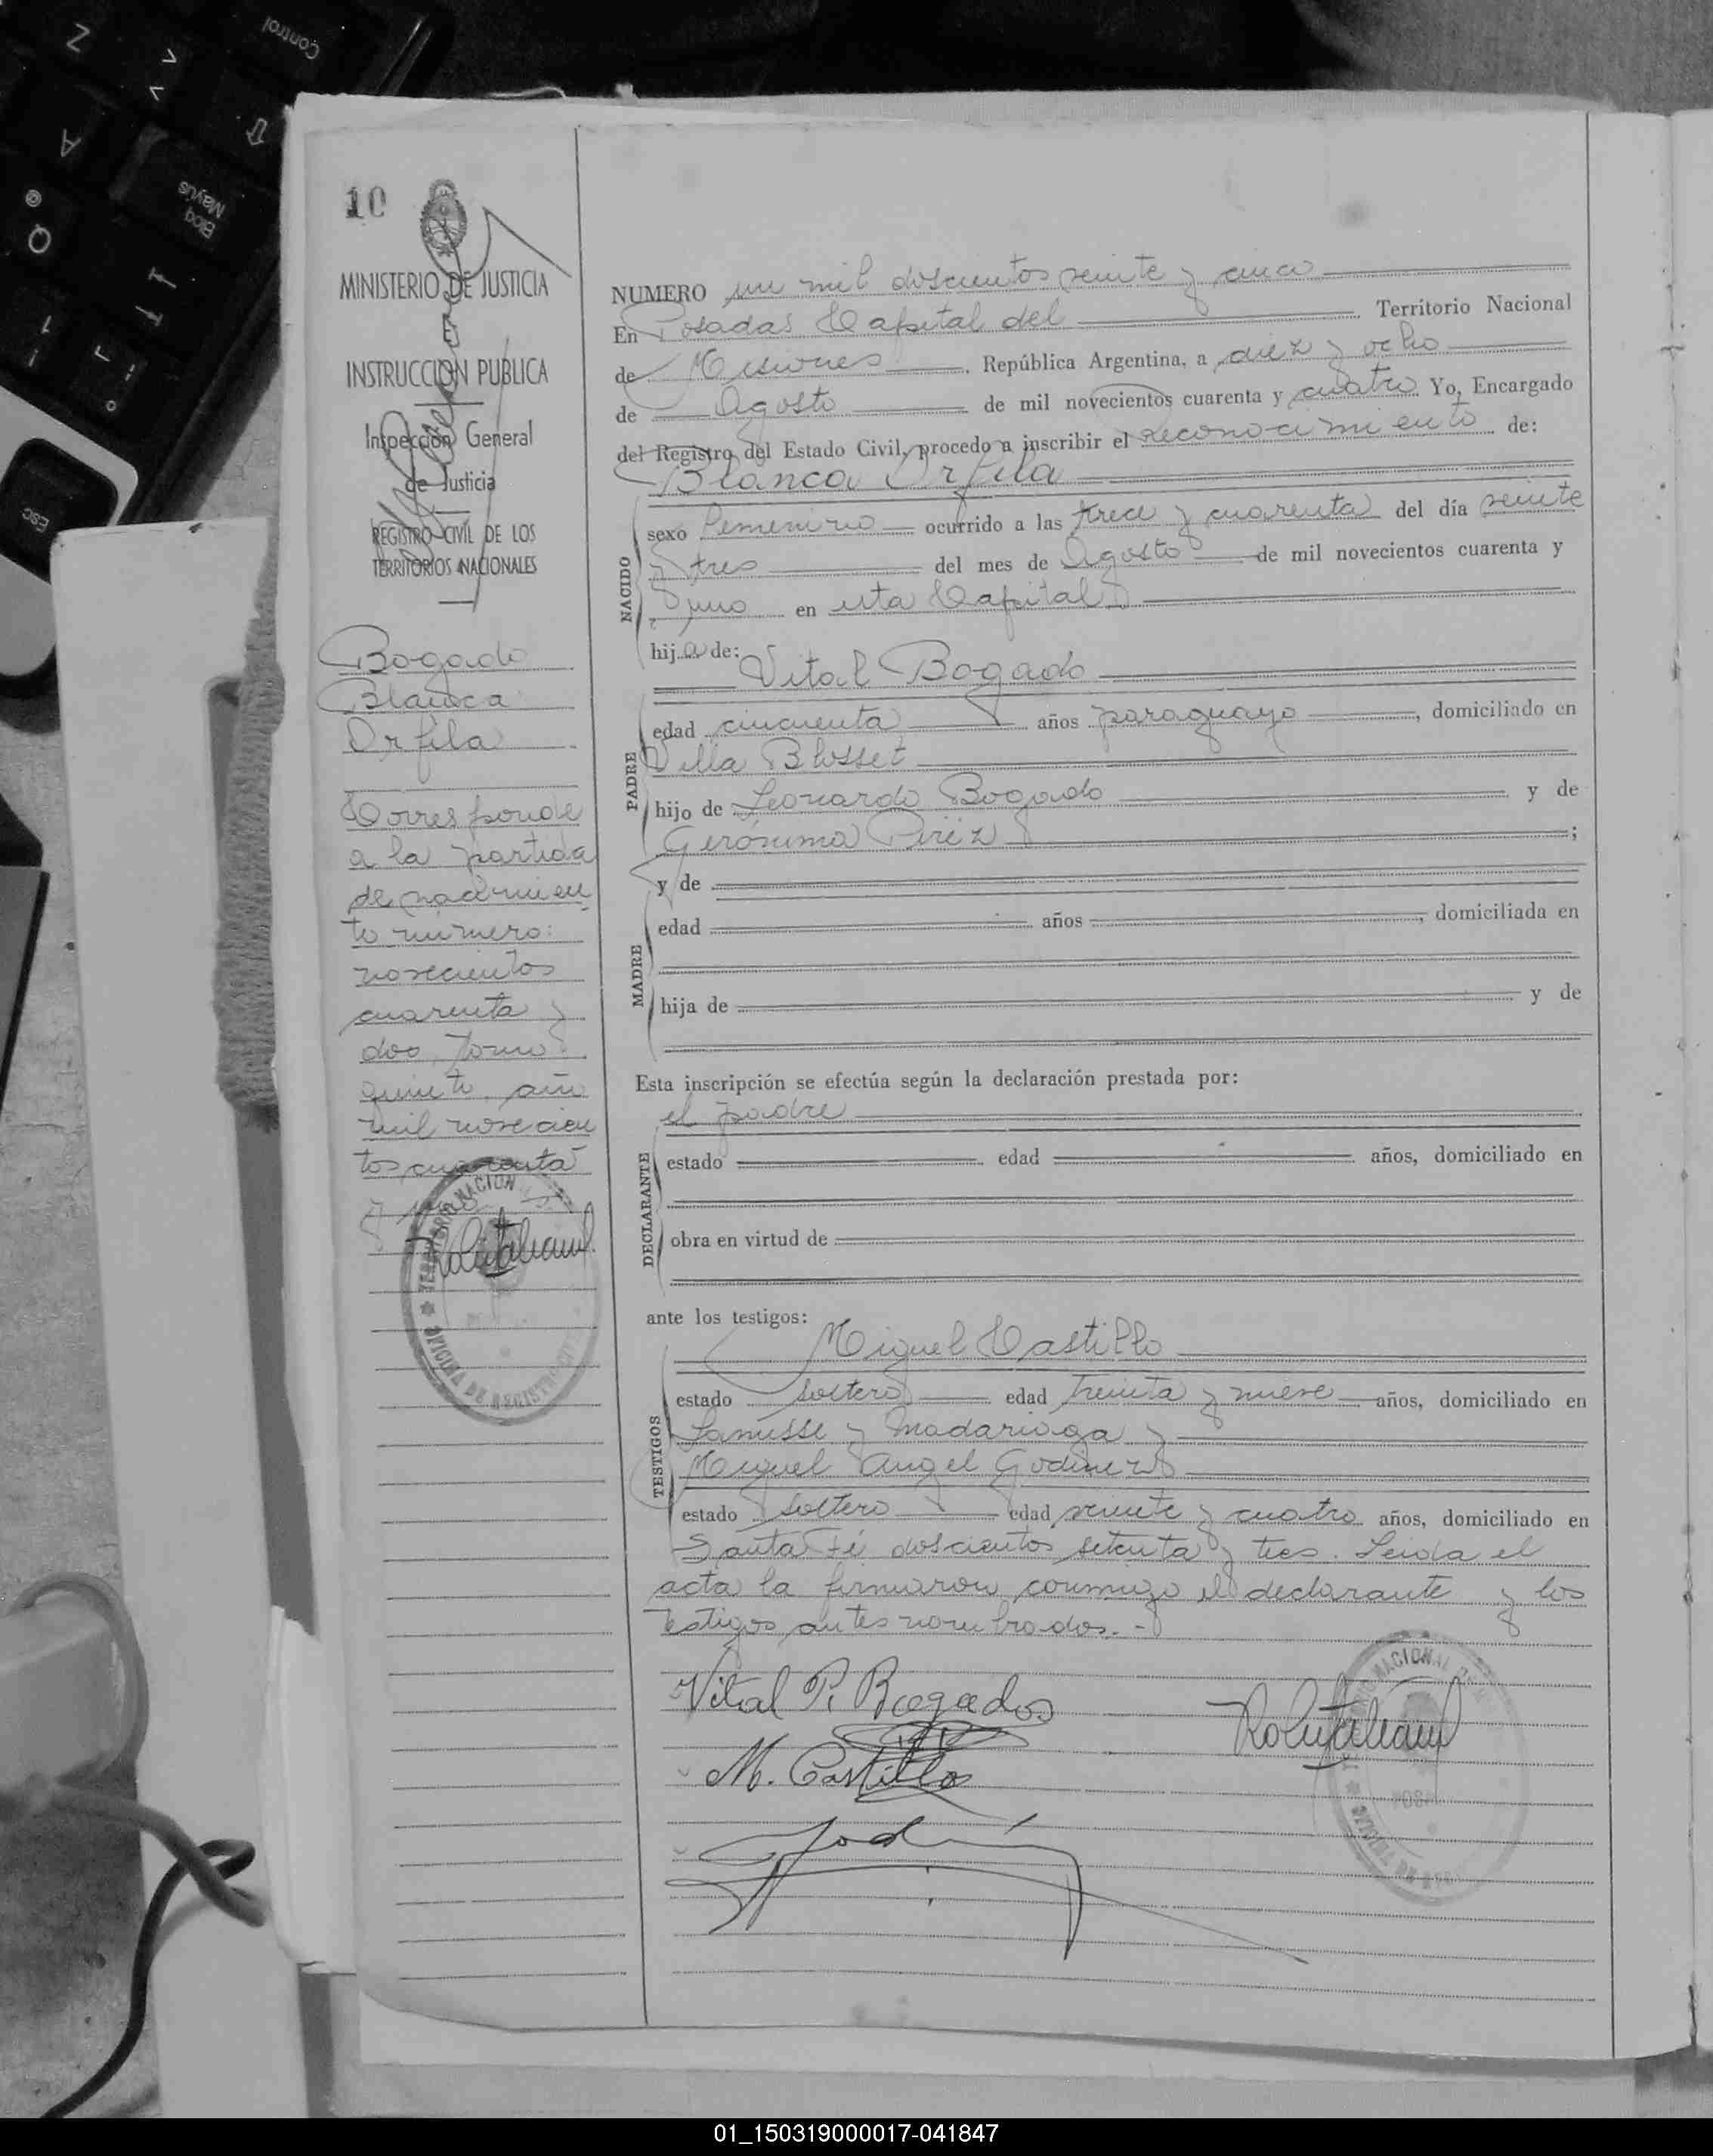 10
MINISTERIO DE JUSTICIA
INSTRUCCION PUBLICA
Inspección General
de Justicia
REGISTRO CIVIL DE LOS
TERRITORIOS NACIONALES
Bogado
Blanca
Orfila
Corresponde
a la partida
de nacimien
to número:
novecientos
cuarenta y
dos, Tomo
quinto, año
mil novecien
tos cuarenta
y uno
NUMERO un mil doscientos veinte y cinco
En Posadas Capital del Territorio Nacional
de Misiones, República Argentina, a diez y ocho
de Agosto de mil novecientos cuarenta y cuatro Yo, Encargado
del Registro del Estado Civil, procedo a inscribir el reconocimiento de:
Blanca Orfila
NACIDO
sexo femenino ocurrido a las trece y cuarenta del día veinte
y tres del mes de Agosto de mil novecientos cuarenta y
uno en esta Capital
hija de:
Vital Bogado
PADRE
edad cincuenta años paraguayo, domiciliado en
Villa Blosset
hijo de Leonardo Bogado y de
Gerónima Pirez;
y de
MADRE
edad años, domiciliada en
hija de y de
Esta inscripción se efectúa según la declaración prestada por:
el padre
DECLARANTE
estado edad años, domiciliado en
obra en virtud de
ante los testigos:
Miguel Castillo
TESTIGOS
estado soltero edad treinta y nueve años, domiciliado en
Lanusse y Madariaga y
Miguel Angel Godinez
estado soltero edad veinte y cuatro años, domiciliado en
Santa Fé doscientos setenta y tres. Leida el
acta la firmaron conmigo el declarante y los
testigos antes nombrados.-
Vital P. Bogado
M. Castillo
NACIONAL
OFICINA DE REGISTRO
01_150319000017-041847
Control
Z
A
Bloq
Mayús
Q
Esc